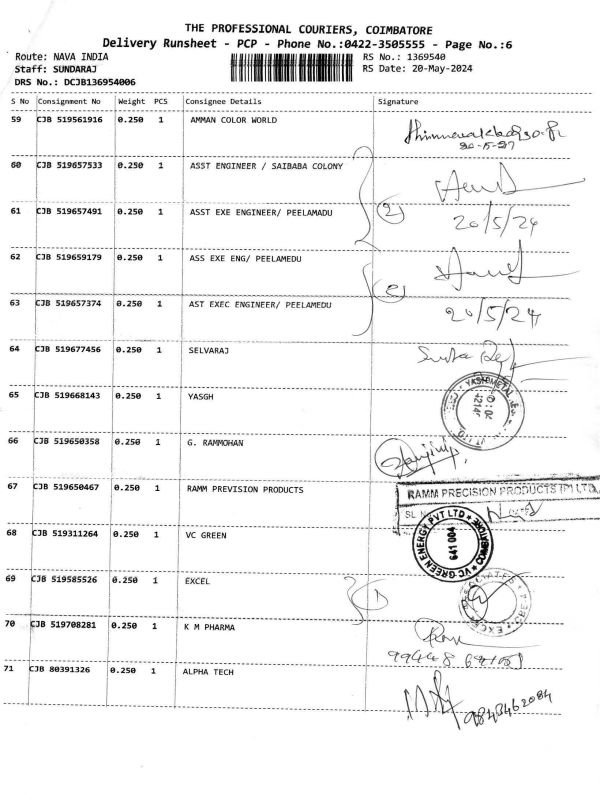 THE PROFESSIONAL COURIERS, COIMBATORE
Delivery Runsheet - PCP - Phone No.:0422-3505555 - Page No.:6
Route: NAVA INDIA RS No.: 1369540
Staff: SUNDARAJ RS Date: 20-May-2024
DRS No.: DCJB136954006
S No Consignment No Weight PCS Consignee Details Signature
59 CJB 519561916 0.250 1 AMMAN COLOR WORLD
60 CJB 519657533 0.250 1 ASST ENGINEER / SAIBABA COLONY
61 CJB 519657491 0.250 1 ASST EXE ENGINEER/ PEELAMADU 2 20/5/24
62 CJB 519659179 0.250 1 ASS EXE ENG/ PEELAMEDU
63 CJB 519657374 0.250 1 AST EXEC ENGINEER/ PEELAMEDU 20/5/24
64 CJB 519677456 0.250 1 SELVARAJ
65 CJB 519668143 0.250 1 YASGH
66 CJB 519650358 0.250 1 G. RAMMOHAN
67 CJB 519650467 0.250 1 RAMM PREVISION PRODUCTS RAMM PRECISION PRODUCTS (P) LTD.
SL N
68 CJB 519311264 0.250 1 VC GREEN VC GREEN ENERGY PVT LTD ★ COIMBATORE ★ 641 004
69 CJB 519585526 0.250 1 EXCEL
70 CJB 519708281 0.250 1 K M PHARMA
71 CJB 80391326 0.250 1 ALPHA TECH
9843462084